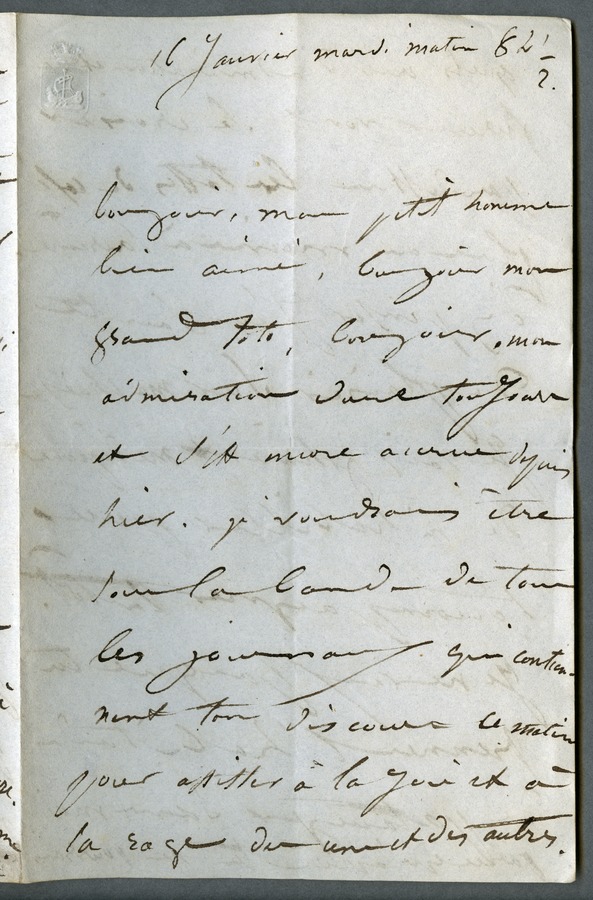 16 Janvier mardi matin 8h 1/2.
bonjour, mon petit homme
bien aimé, bonjour mon
grand Toto, bonjour, mon
admiration dure toujours
et s'est encore accrue depuis
hier. je voudrais être
sous la bande de tous
les journaux qui contien-
nent ton discours ce matin
pour assister à la joie et à
la rage des uns et des autres.